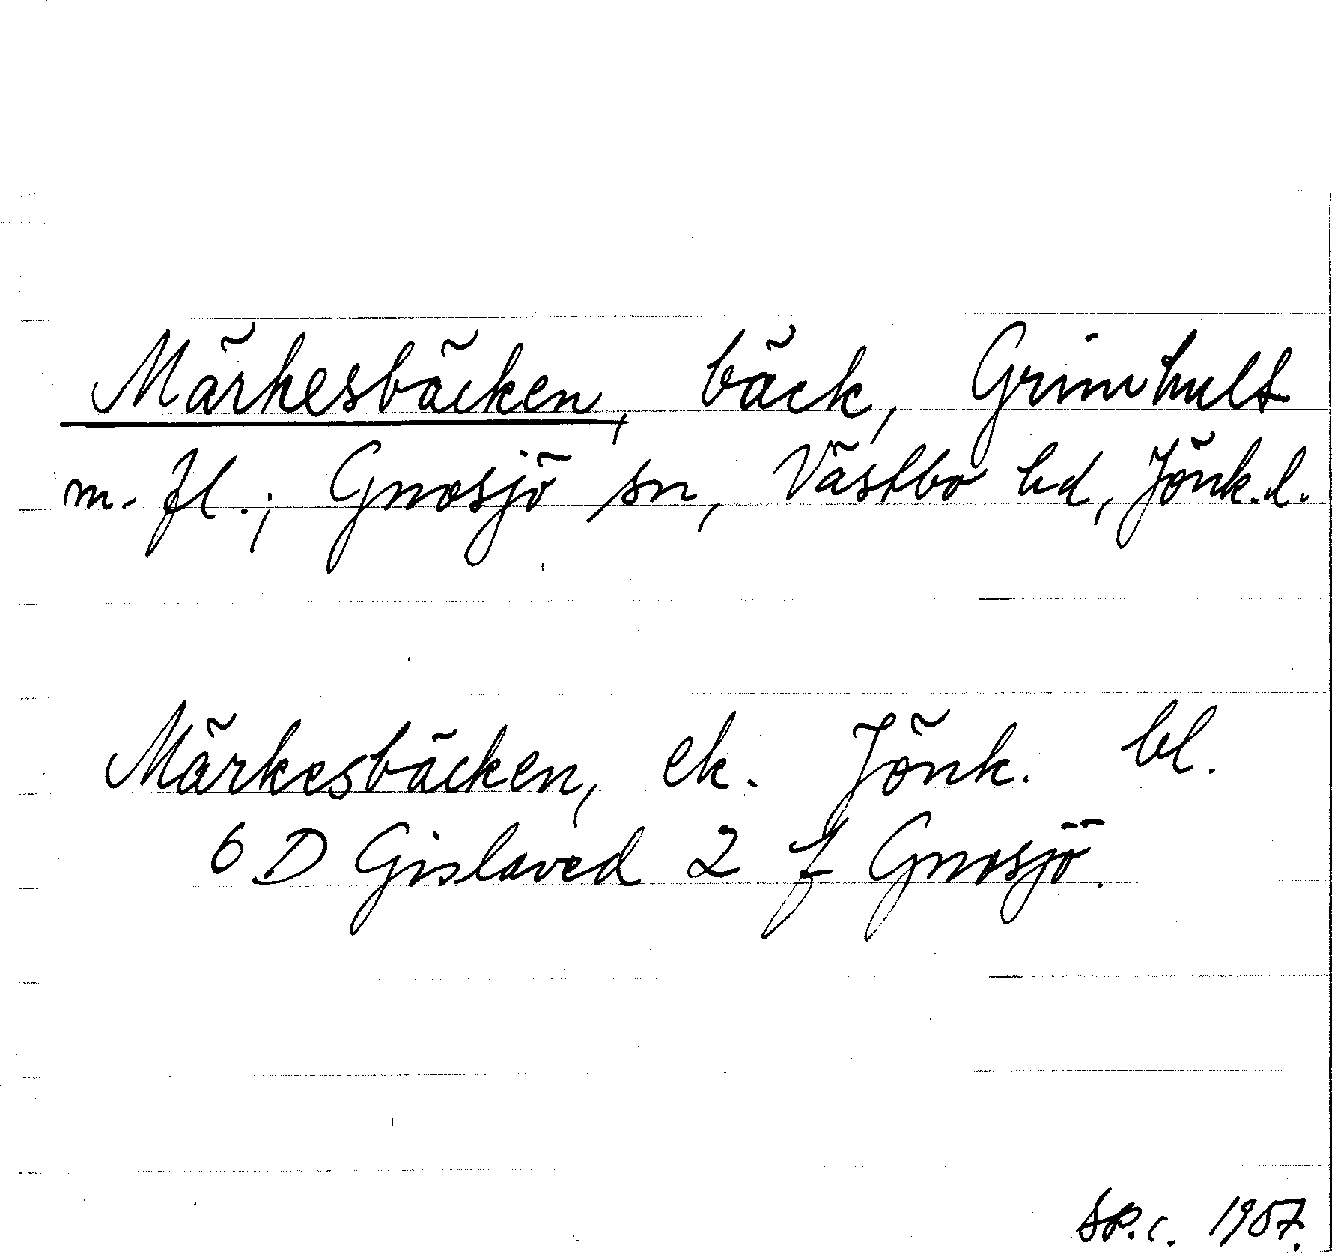 Märkesbäcken, bäck, Grimhult
m. fl.; Gnosjö sn, Västbo hd, Jönk.l.
Märkesbäcken, ek. Jönk. bl.
6 D Gislaved 2 f Gnosjö.
1987.